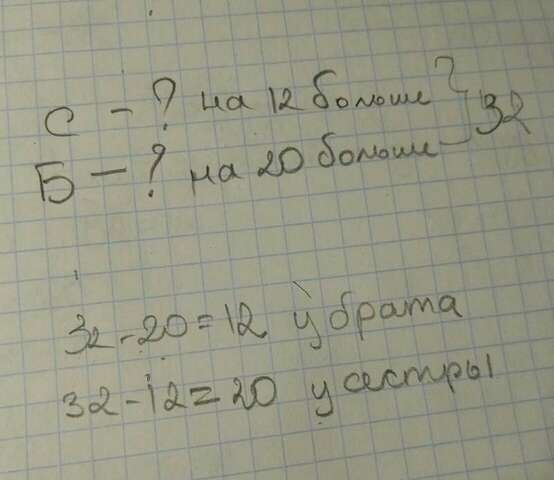 С - ? на 12 больше
Б - ? на 20 больше
32
32-20=12 у брата
32-12=20 у сестры